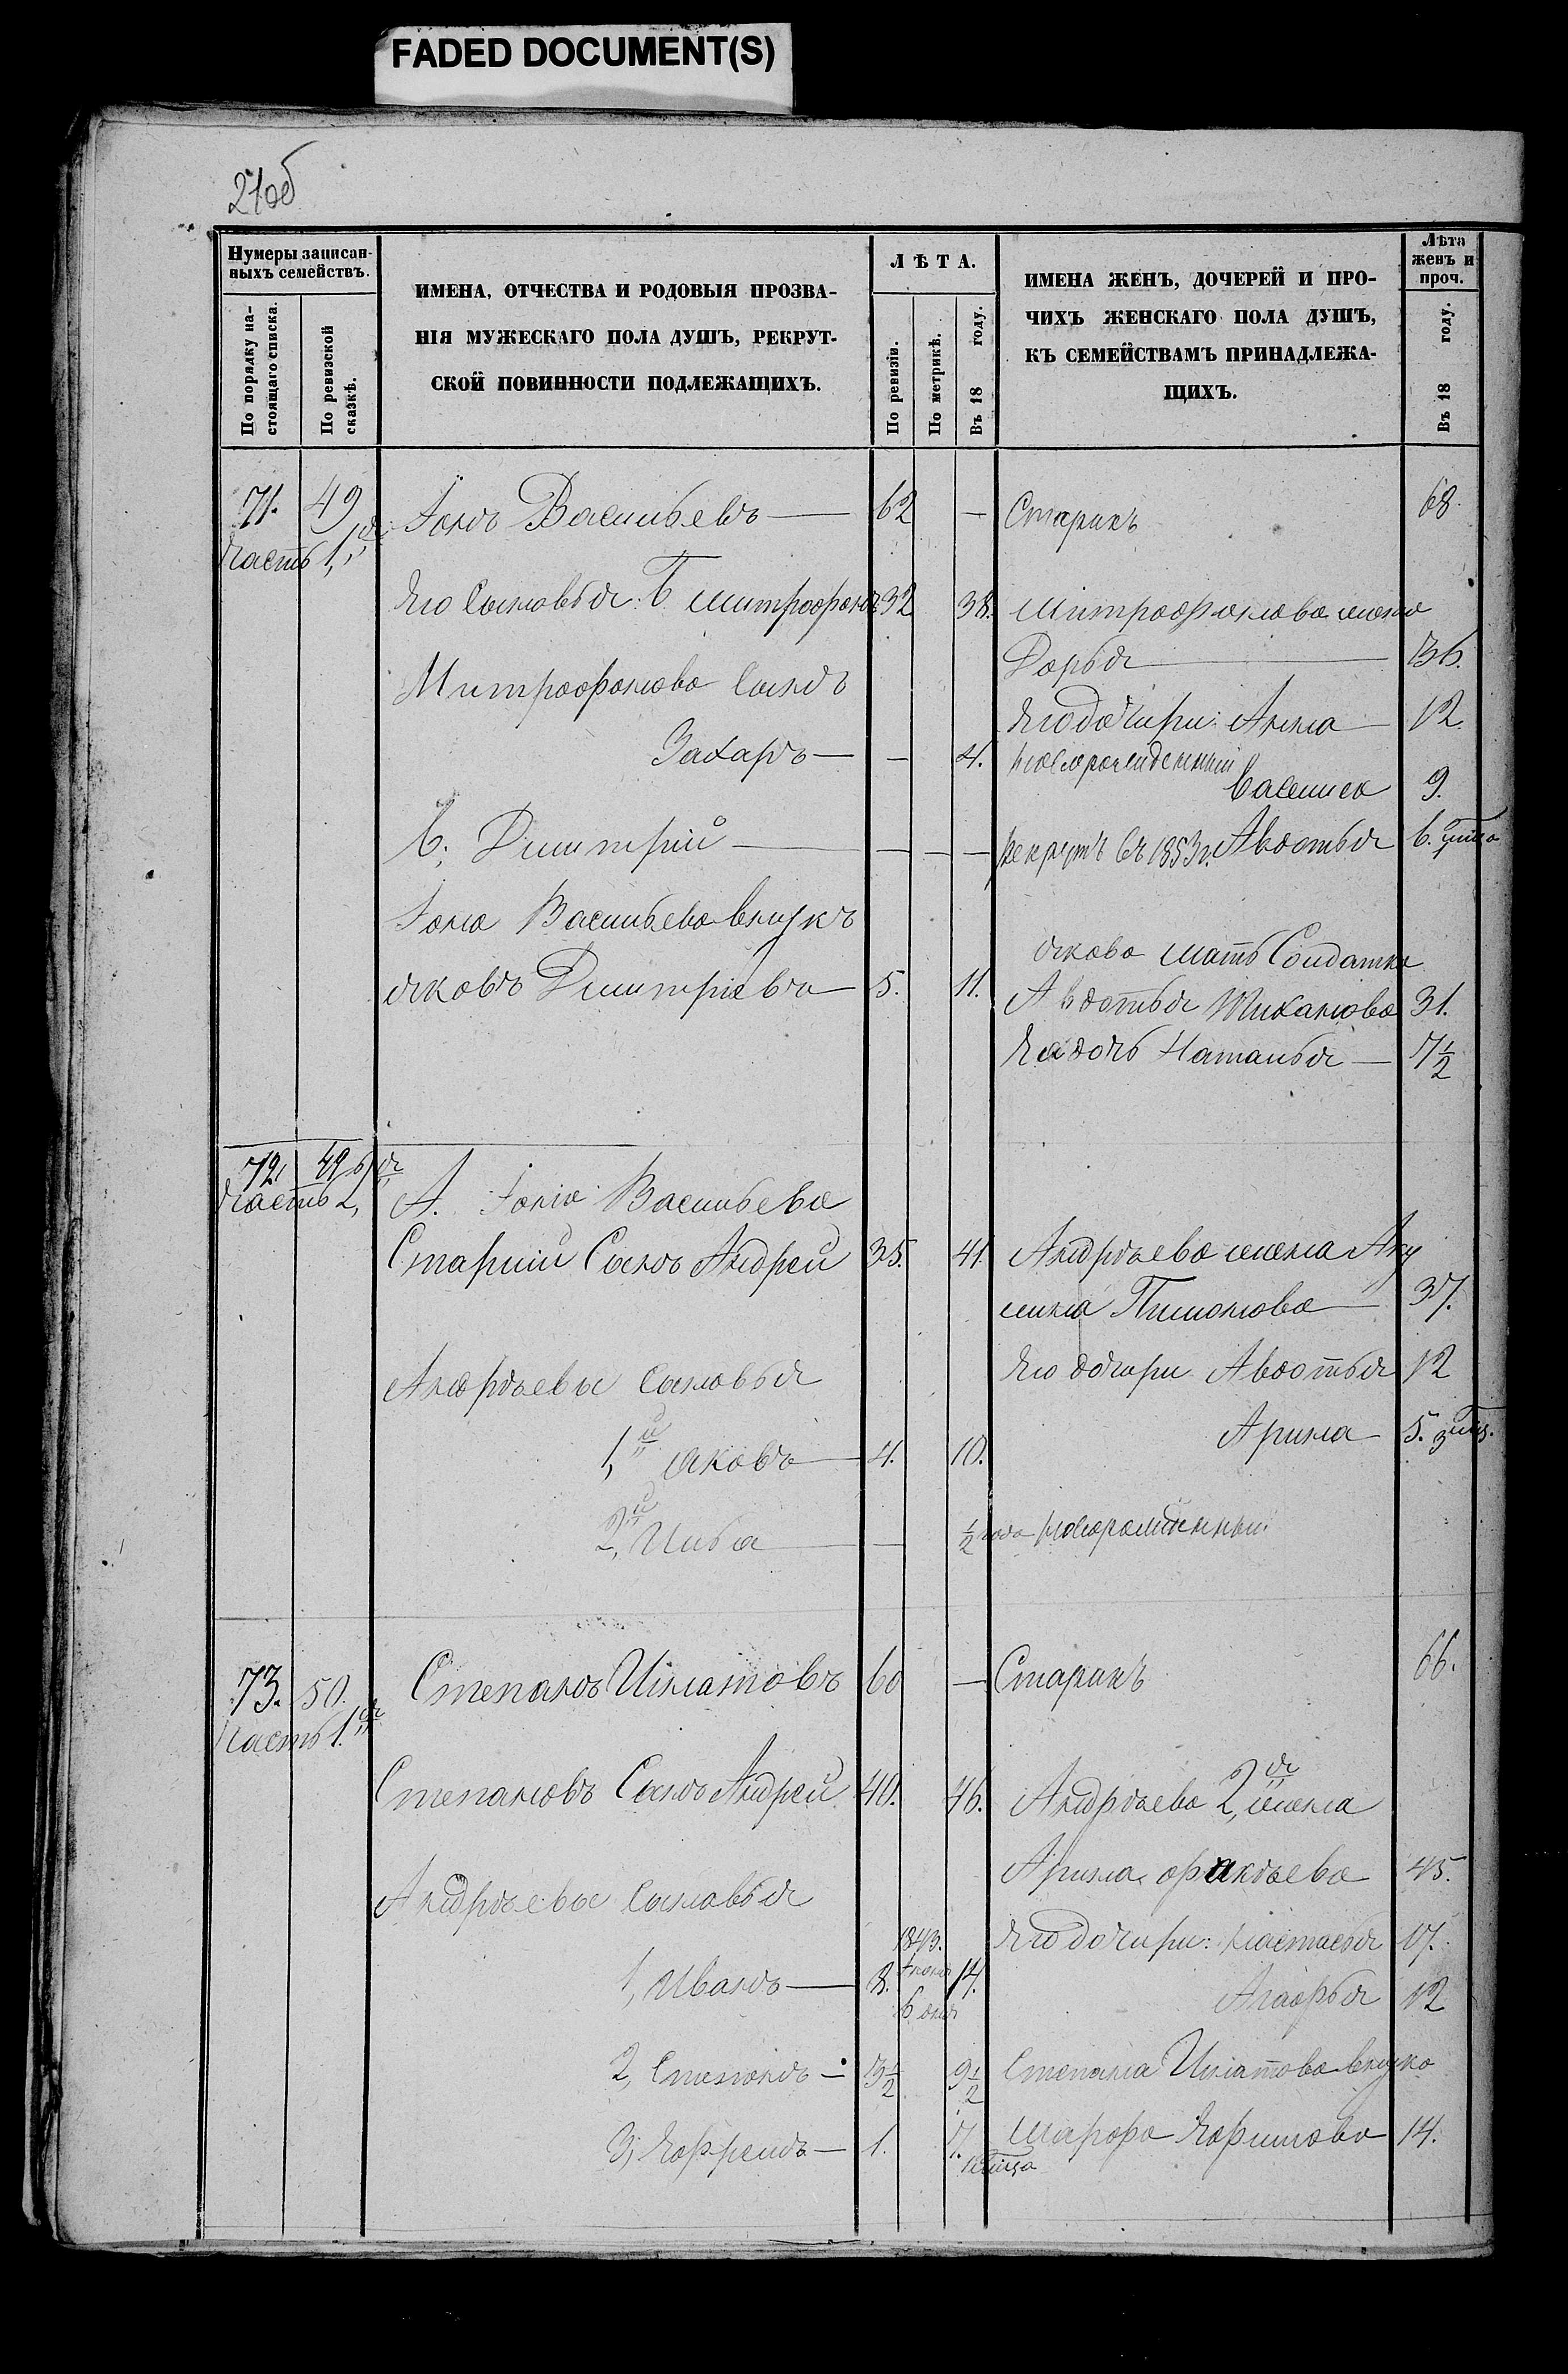 FADED DOCUMENT(S)
21об
Нумеры записан-
ныхъ семействъ.
По порядку на-
стоящаго списка.
По ревизской
сказкѣ.
ИМЕНА, ОТЧЕСТВА И РОДОВЫЯ ПРОЗВА-
НІЯ МУЖЕСКАГО ПОЛА ДУШЪ, РЕКРУТ-
СКОЙ ПОВИННОСТИ ПОДЛЕЖАЩИХЪ.
ЛѢТА.
По ревизіи.
По метрикѣ.
Въ 18 году.
ИМЕНА ЖЕНЪ, ДОЧЕРЕЙ И ПРО-
ЧИХЪ ЖЕНСКАГО ПОЛА ДУШЪ,
КЪ СЕМЕЙСТВАМЪ ПРИНАДЛЕЖА-
ЩИХЪ.
Лѣта
женъ и
проч.
Въ 18 году.
71. 49 Іонъ Васильевъ — 62 — Старикъ 68.
Часть 1,я
Его Сыновья: Б. Митрофанъ 32 38. Митрофанова жена
Дарья — 36.
Митрофанова Сынъ
Его дочири: Анна — 12.
Захаръ — — 4. новорожденный
Василиса 9.
В. Димитрій — — — — рекрутъ въ 1853 г. Авдотья 6.
Іона Васильева внукъ
Якова мать Солдатка
Яковъ Димитріевъ — 5. 11. Авдотья Тиханова 31.
Ея дочь Наталья — 7 1/2
72. 49
Часть 2,я А. Іона Васильева
Старшій Сынъ Андрей 35. 41. Андрѣева жена Аку
лина Пимонова — 37.
Его дочири Авдотья 12
Андрѣевы Сыновья
Арина — 5.
1,й Яковъ — 4. 10.
2,й Илья — — 1/2 года новорожденный
73. 50. Степанъ Игнатовъ 60 — Старикъ 66.
Часть 1.я
Степановъ Сынъ Андрей 40. 46. Андрѣева 2,я жена
Арина Факѣева 45.
Андрѣевы Сыновья
Его дочири: Настасья 17.
1843.
1, Иванъ — 8. 14.
Агафья 12
2, Семіонъ — 3 1/2 9 1/2 Степана Игнатова внука
3, Ефремъ — 1. 7. Марфа Ефимова 14.